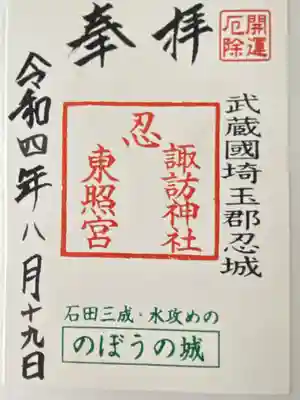 奉拝
開運
厄除
武蔵國埼玉郡忍城
忍
諏訪神社
東照宮
令和四年八月十九日
石田三成・水攻めの
のぼうの城